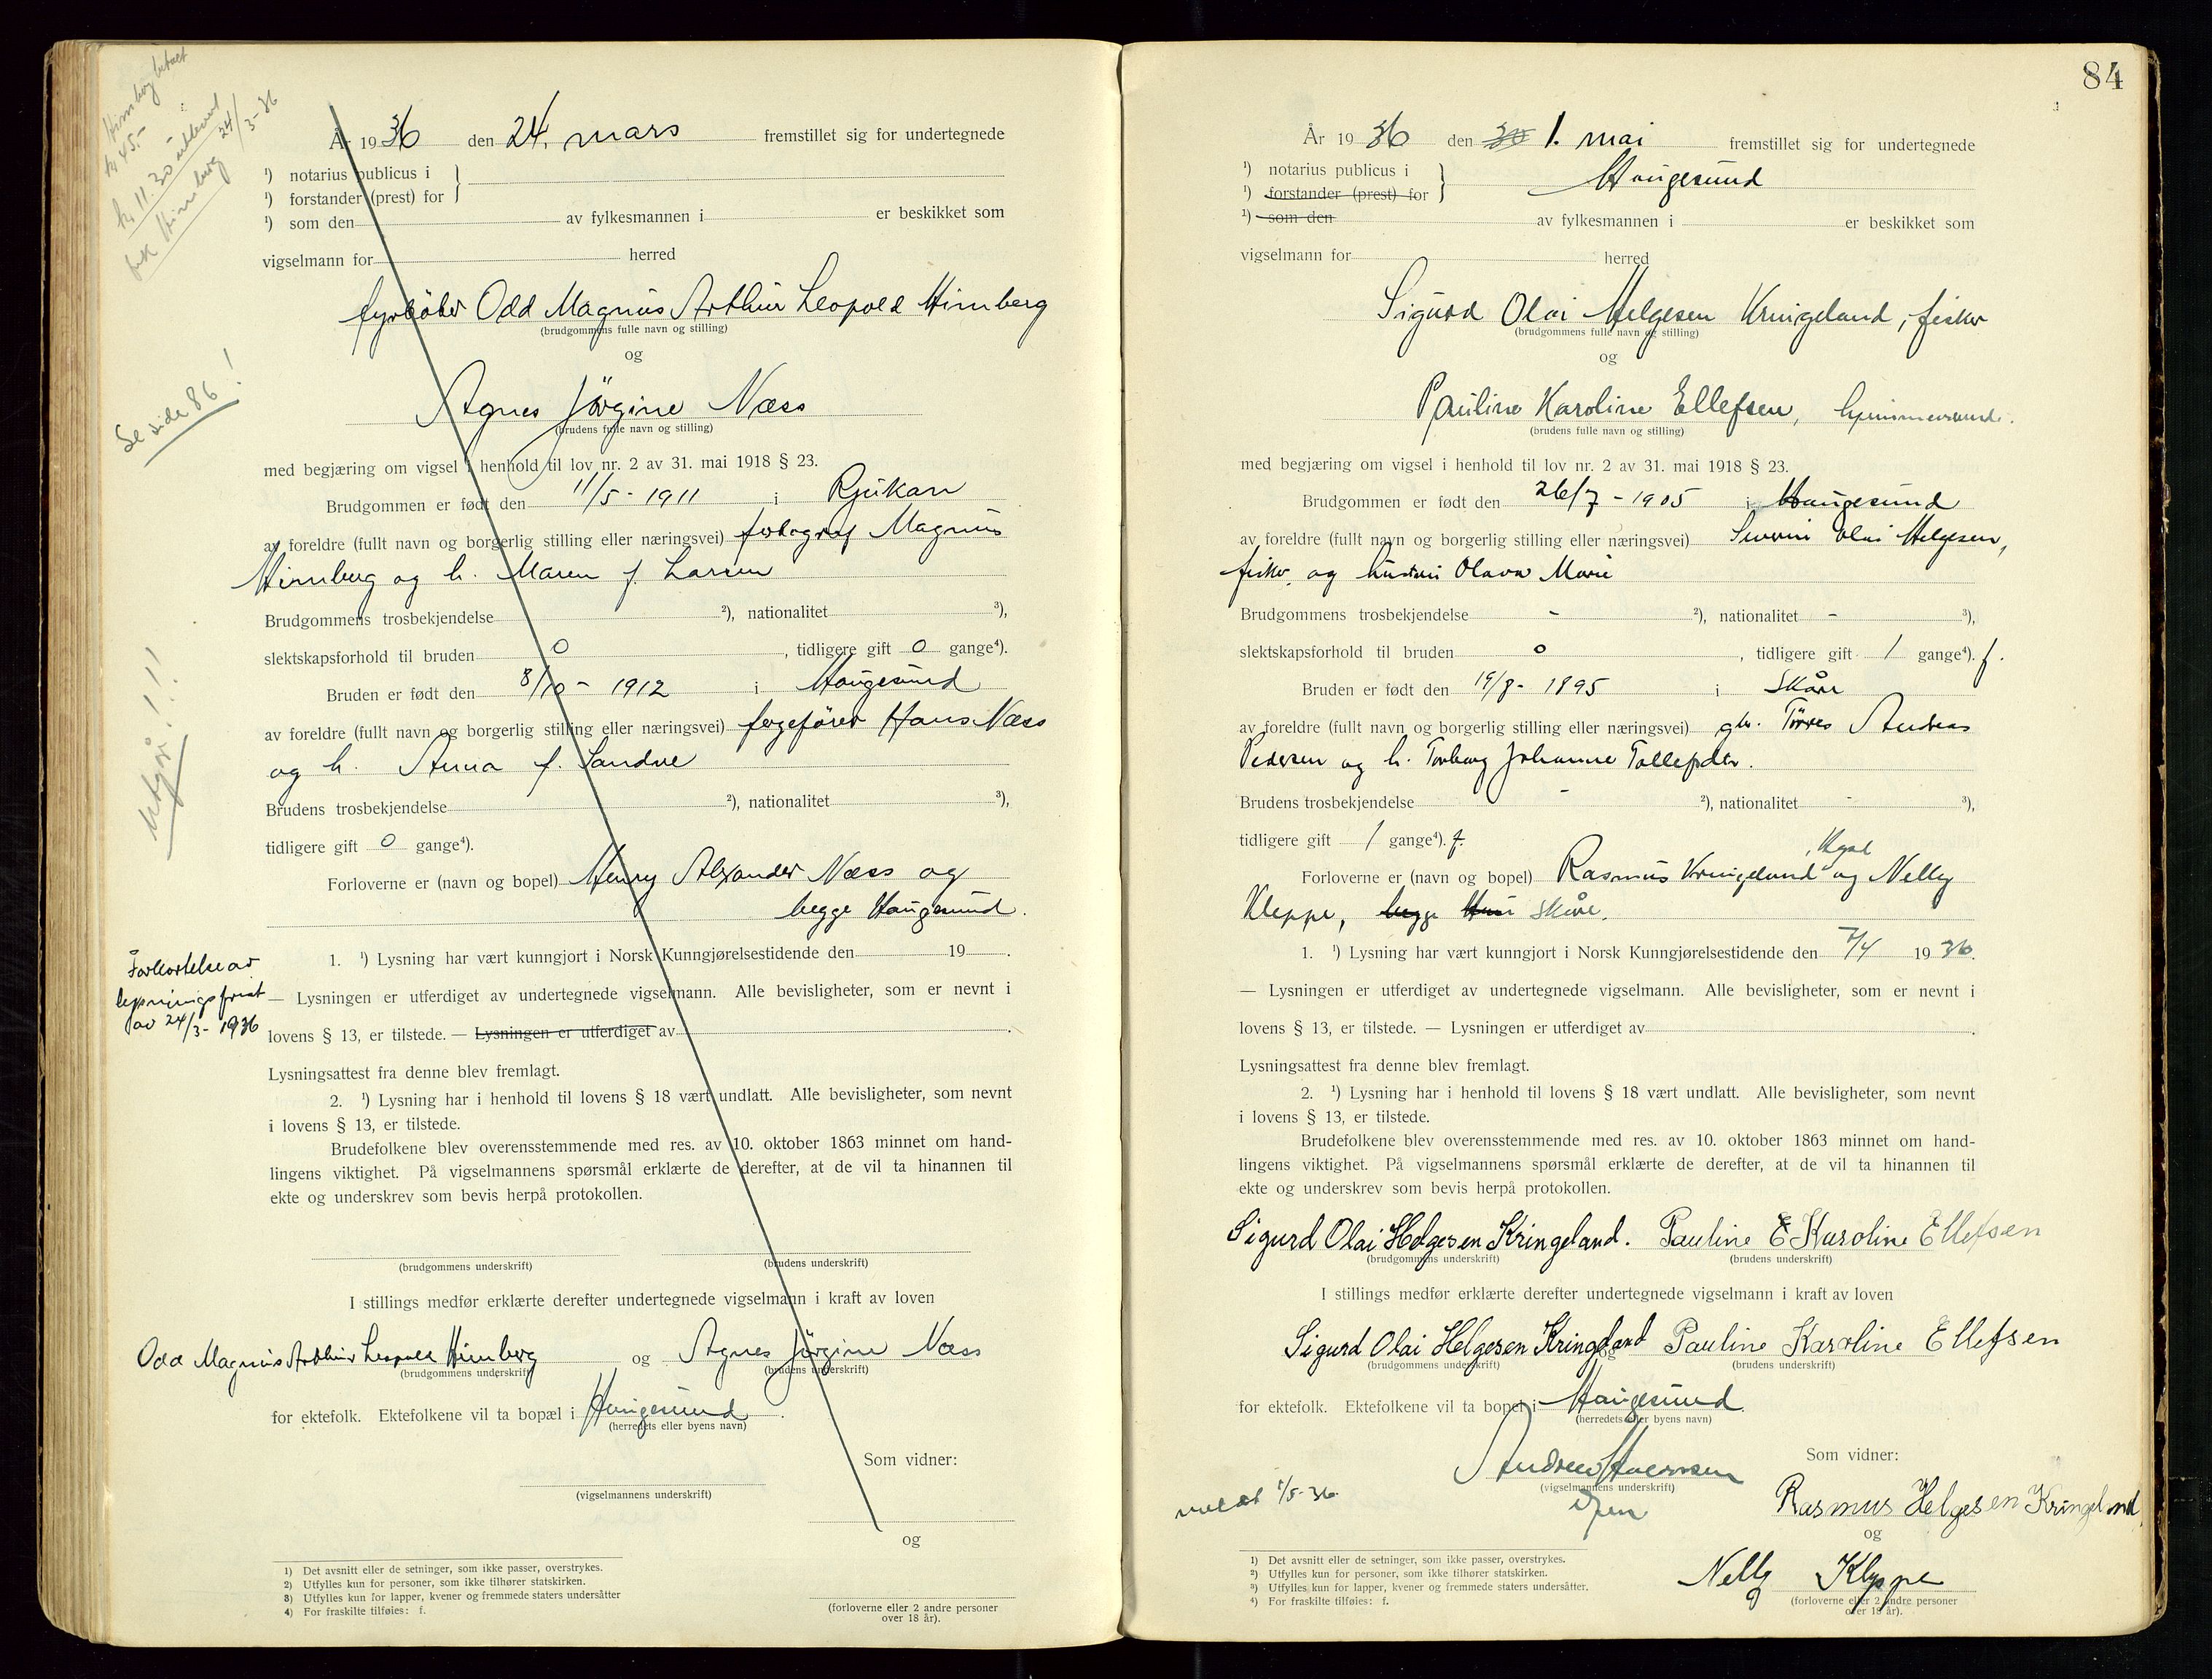 Himberg betalt
kr 45.-
kr 11.30 utlevert
fikk Himberg 24/3-36
År 1936 den 24. mars fremstillet sig for undertegnede
¹) notarius publicus i
¹) forstander (prest) for
¹) som den av fylkesmannen i er beskikket som
vigselmann for herred
fyrbøter Odd Magnus Arthur Leopold Himberg
(brudgommens fulle navn og stilling)
og
Se side 86!
Agnes Jörgine Næss
(brudens fulle navn og stilling)
med begjæring om vigsel i henhold til lov nr. 2 av 31. mai 1918 § 23.
Brudgommen er født den 11/5 - 1911 i Rjukan
av foreldre (fullt navn og borgerlig stilling eller næringsvei) fotograf Magnus
Himberg og h. Maren f. Larsen
Brudgommens trosbekjendelse ²), nationalitet ³),
slektskapsforhold til bruden 0, tidligere gift 0 gange⁴).
Utgår!!!
Bruden er født den 8/10 - 1912 i Haugesund
av foreldre (fullt navn og borgerlig stilling eller næringsvei) fergefører Hans Næss
og h. Anna f. Sandve
Brudens trosbekjendelse ²), nationalitet ³),
tidligere gift 0 gange⁴).
Forloverne er (navn og bopel) Henry Alexander Næss og
begge Haugesund.
1. ¹) Lysning har vært kunngjort i Norsk Kunngjørelsestidende den 19 .
Forkortelse av
lysningsfrist
av 24/3 - 1936
— Lysningen er utferdiget av undertegnede vigselmann. Alle bevisligheter, som er nevnt i
lovens § 13, er tilstede. — Lysningen er utferdiget av .
Lysningsattest fra denne blev fremlagt.
2. ¹) Lysning har i henhold til lovens § 18 vært undlatt. Alle bevisligheter, som nevnt
i lovens § 13, er tilstede.
Brudefolkene blev overensstemmende med res. av 10. oktober 1863 minnet om hand-
lingens viktighet. På vigselmannens spørsmål erklærte de derefter, at de vil ta hinannen til
ekte og underskrev som bevis herpå protokollen.
(brudgommens underskrift) (brudens underskrift)
I stillings medfør erklærte derefter undertegnede vigselmann i kraft av loven
Odd Magnus Arthur Leopold Himberg og Agnes Jörgine Næss
(brudgommens underskrift) (brudens underskrift)
for ektefolk. Ektefolkene vil ta bopæl i Haugesund.
(herredets eller byens navn)
Som vidner:
(vigselmannens underskrift)
og
1) Det avsnitt eller de setninger, som ikke passer, overstrykes.
2) Utfylles kun for personer, som ikke tilhører statskirken.
3) Utfylles kun for lapper, kvener og fremmede staters undersåtter
4) For fraskilte tilføies: f.
(forloverne eller 2 andre personer
over 18 år).
84
År 1936 den 30 1. mai fremstillet sig for undertegnede
¹) notarius publicus i
Haugesund
¹) forstander (prest) for
¹) som den av fylkesmannen i er beskikket som
vigselmann for herred
Sigurd Olai Helgesen Kringeland, fisker
(brudgommens fulle navn og stilling)
og
Pauline Karoline Ellefsen,
(brudens fulle navn og stilling)
med begjæring om vigsel i henhold til lov nr. 2 av 31. mai 1918 § 23.
Brudgommen er født den 26/7 - 1905 i Haugesund
av foreldre (fullt navn og borgerlig stilling eller næringsvei) Severin Olai Helgesen,
fisker, og hustru Olava Marie
Brudgommens trosbekjendelse - ²), nationalitet - ³),
slektskapsforhold til bruden 0, tidligere gift 1 gange⁴). f.
Bruden er født den 19/8 - 1895 i Skåre
av foreldre (fullt navn og borgerlig stilling eller næringsvei) gbr. Törres Andreas
Pedersen og h. Torborg Johanne Tollefsdtr.
Brudens trosbekjendelse - ²), nationalitet - ³),
tidligere gift 1 gange⁴). f.
Forloverne er (navn og bopel) Rasmus Kringeland, Hgsd og Nelly
Kleppe, begge Skåre.
1. ¹) Lysning har vært kunngjort i Norsk Kunngjørelsestidende den 7/4 1936.
— Lysningen er utferdiget av undertegnede vigselmann. Alle bevisligheter, som er nevnt i
lovens § 13, er tilstede. — Lysningen er utferdiget av .
Lysningsattest fra denne blev fremlagt.
2. ¹) Lysning har i henhold til lovens § 18 vært undlatt. Alle bevisligheter, som nevnt
i lovens § 13, er tilstede.
Brudefolkene blev overensstemmende med res. av 10. oktober 1863 minnet om hand-
lingens viktighet. På vigselmannens spørsmål erklærte de derefter, at de vil ta hinannen til
ekte og underskrev som bevis herpå protokollen.
Sigurd Olai Helgesen Kringeland. Pauline E Karoline Ellefsen
(brudgommens underskrift) (brudens underskrift)
I stillings medfør erklærte derefter undertegnede vigselmann i kraft av loven
Sigurd Olai Helgesen Kringeland og Pauline Karoline Ellefsen
(brudgommens underskrift) (brudens underskrift)
for ektefolk. Ektefolkene vil ta bopel i Haugesund.
(herredets eller byens navn)
Som vidner:
(vigselmannens underskrift)
meldt 1/5-36.
Rasmus Helgesen Kringeland
og
Nelly Kleppe
1) Det avsnitt eller de setninger, som ikke passer, overstrykes.
2) Utfylles kun for personer, som ikke tilhører statskirken.
3) Utfylles kun for lapper, kvener og fremmede staters undersåtter.
4) For fraskilte tilføies: f.
(forloverne eller 2 andre personer
over 18 år).